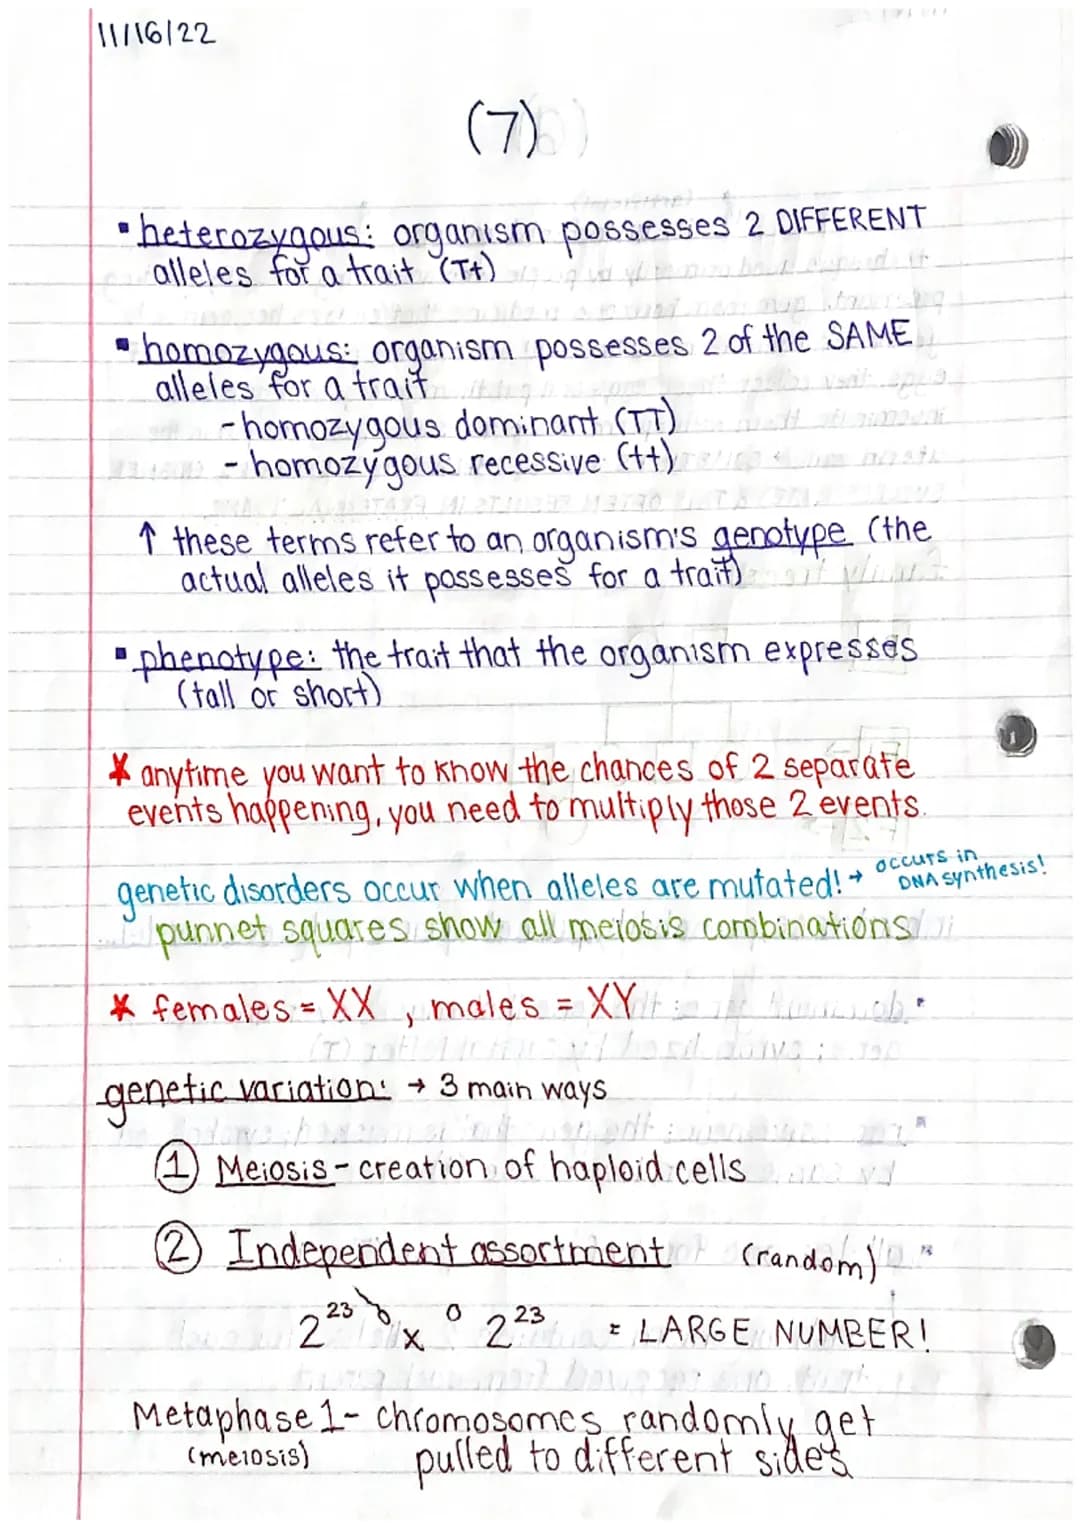 11/16/22
(7)
▪ heterozygous: organism possesses 2 DIFFERENT
alleles for a trait (Tt)
▪ homozygous: organism possesses 2 of the SAME
alleles for a trait
- homozygous dominant (TT)
- homozygous recessive (tt)
↑ these terms refer to an organism's genotype (the
actual alleles it possesses for a trait)
▪ phenotype: the trait that the organism expresses
(tall or short)
* anytime you want to know the chances of 2 separate
events happening, you need to multiply those 2 events.
genetic disorders occur when alleles are mutated! → occurs in
DNA synthesis!
punnet squares show all meiosis combinations
* females = XX, males = XY
genetic variation: → 3 main ways
① Meiosis - creation of haploid cells
② Independent assortment (random)
2²³ x 2²³ = LARGE NUMBER!
Metaphase 1 - chromosomes randomly get
(meiosis) pulled to different sides